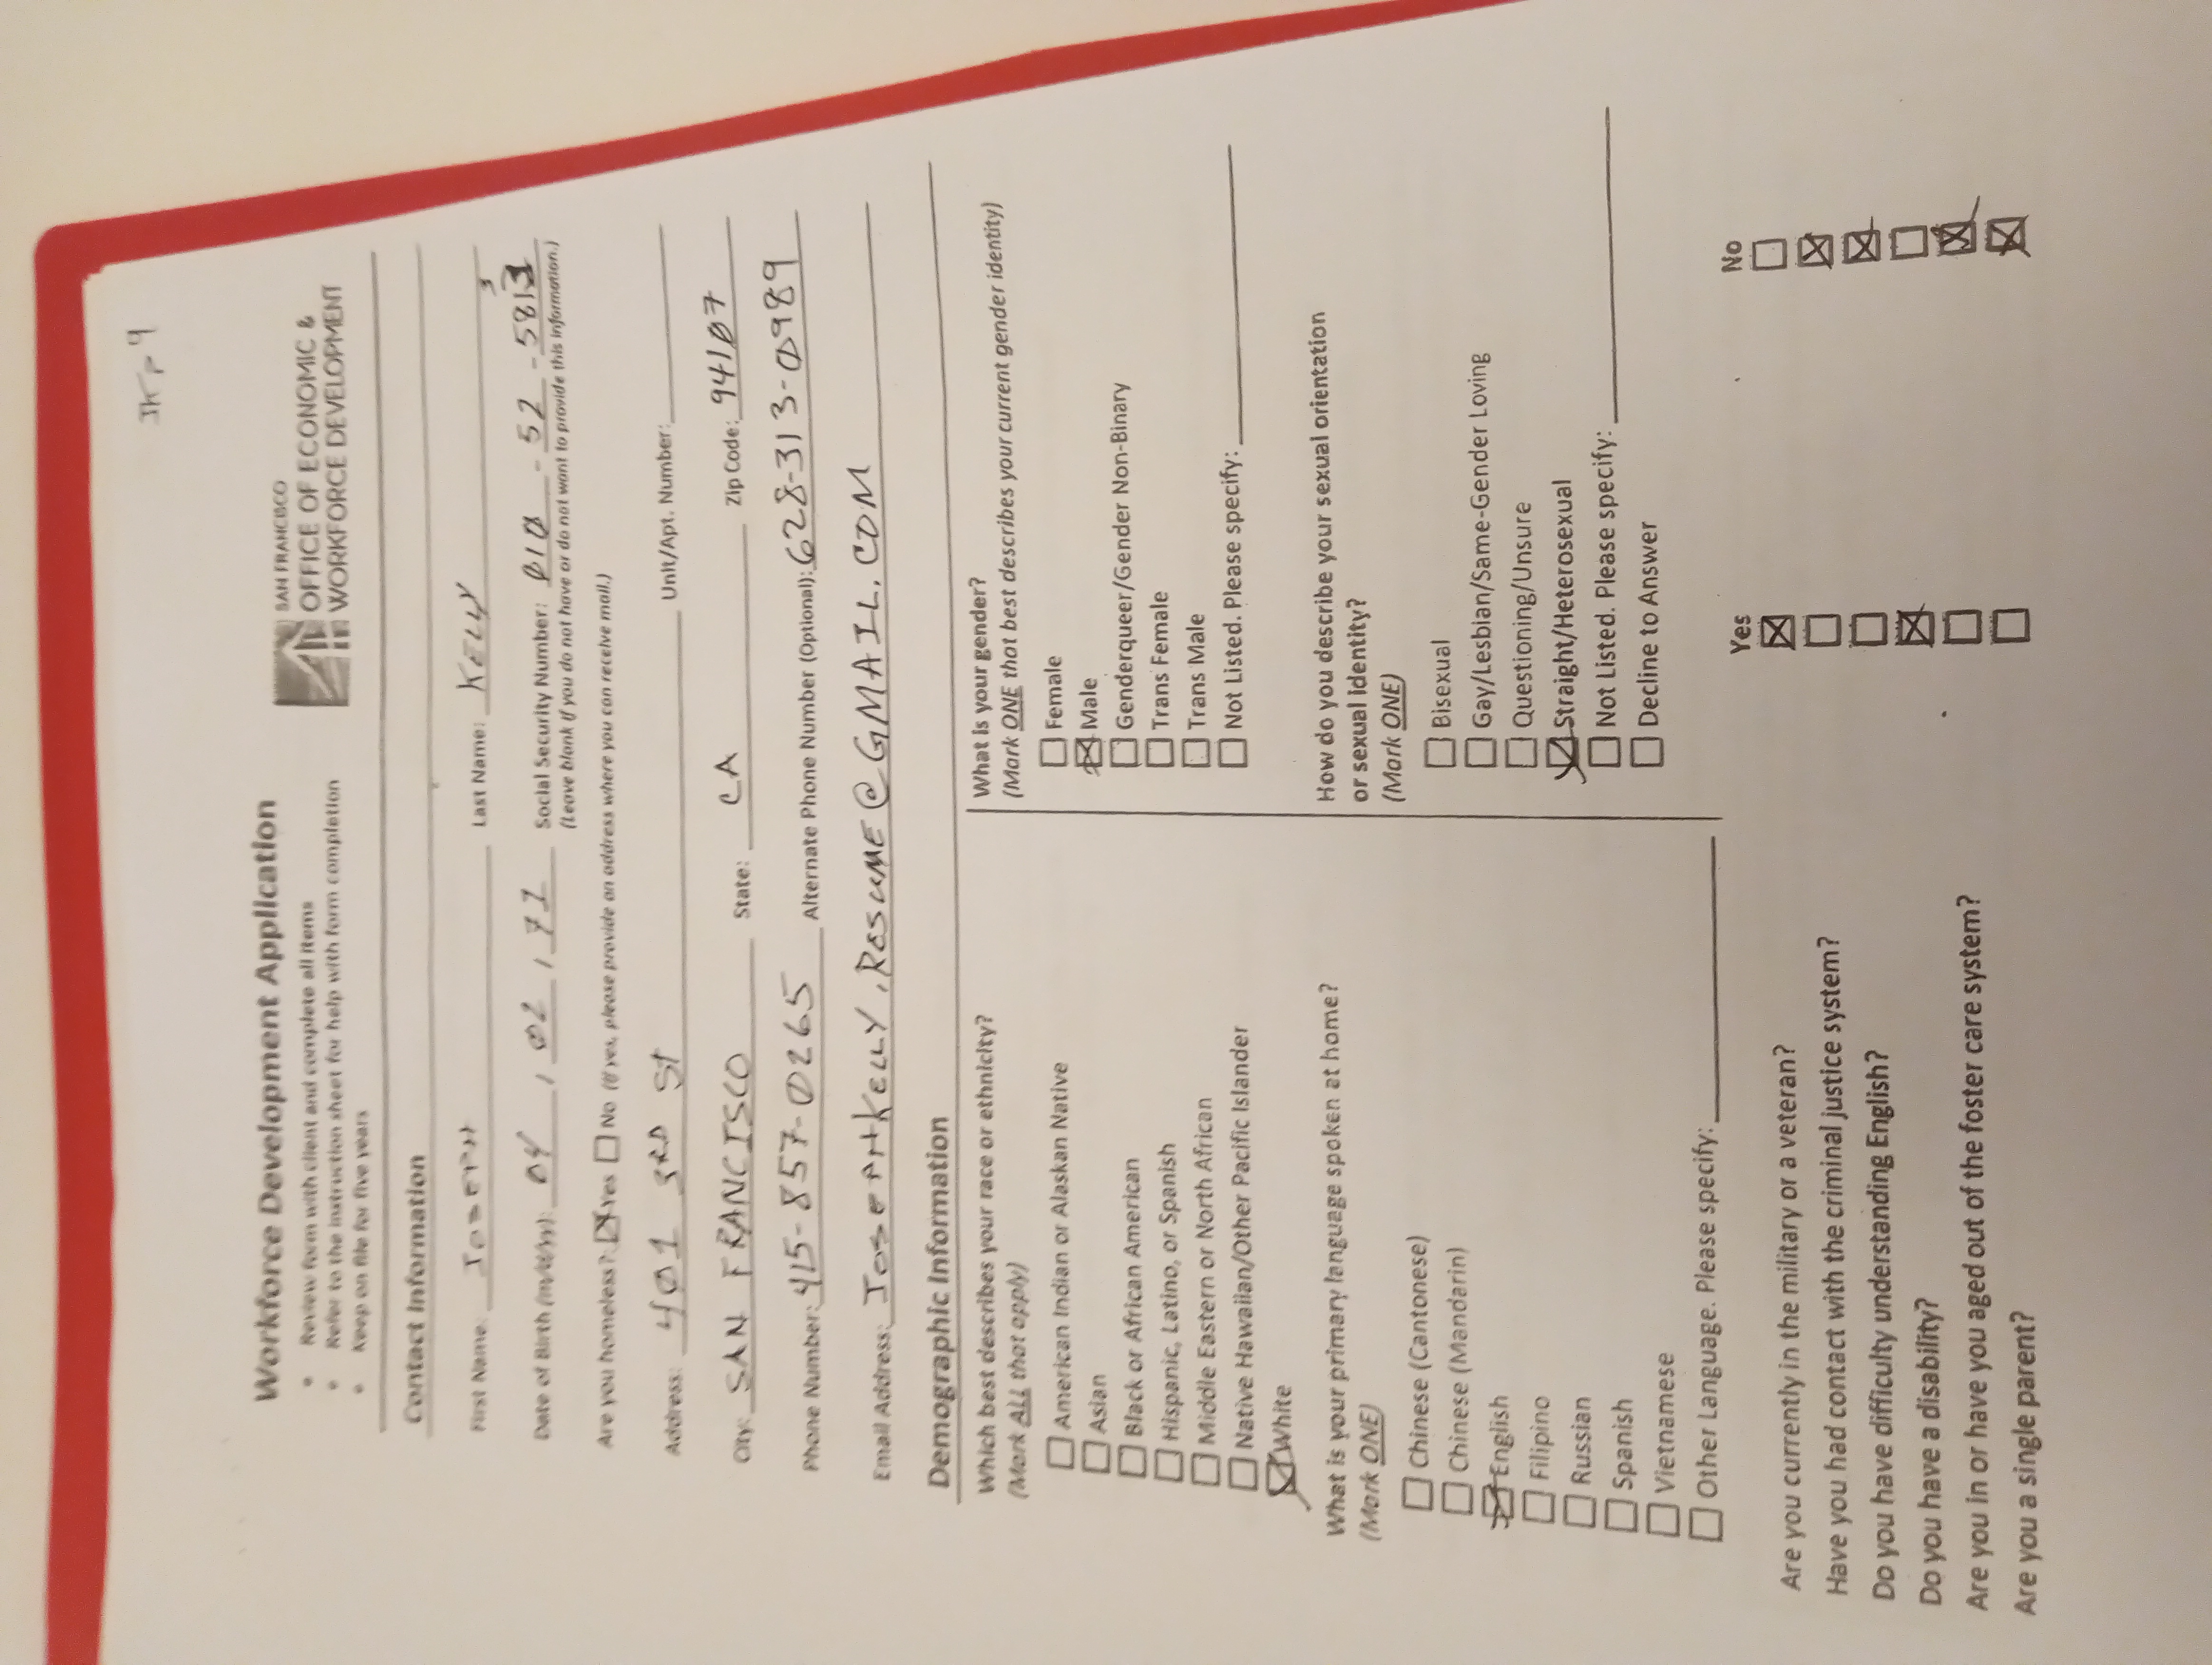 JK p 9
Workforce Development Application
• Review form with client and complete all items
• Refer to the instruction sheet for help with form completion
• Keep on file for five years
SAN FRANCISCO
OFFICE OF ECONOMIC &
WORKFORCE DEVELOPMENT
Contact Information
First Name: JOSEPH Last Name: KELLY
Date of Birth (m/d/yy): 04 / 02 / 71 Social Security Number: 010 - 52 - 5813
3
(Leave blank if you do not have or do not want to provide this information.)
Are you homeless?: ☒ Yes ☐ No (If yes, please provide an address where you can receive mail.)
Address: 401 3RD St Unit/Apt. Number:
City: SAN FRANCISCO State: CA Zip Code: 94107
Phone Number: 415-857-0265 Alternate Phone Number (Optional): 628-313-0989
Email Address: JOSEPHKELLY.RESUME@GMAIL.COM
Demographic Information
Which best describes your race or ethnicity?
(Mark ALL that apply)
☐ American Indian or Alaskan Native
☐ Asian
☐ Black or African American
☐ Hispanic, Latino, or Spanish
☐ Middle Eastern or North African
☐ Native Hawaiian/Other Pacific Islander
☒ White
What is your primary language spoken at home?
(Mark ONE)
☐ Chinese (Cantonese)
☐ Chinese (Mandarin)
☒ English
☐ Filipino
☐ Russian
☐ Spanish
☐ Vietnamese
☐ Other Language. Please specify:
What is your gender?
(Mark ONE that best describes your current gender identity)
☐ Female
☒ Male
☐ Genderqueer/Gender Non-Binary
☐ Trans Female
☐ Trans Male
☐ Not Listed. Please specify:
How do you describe your sexual orientation
or sexual identity?
(Mark ONE)
☐ Bisexual
☐ Gay/Lesbian/Same-Gender Loving
☐ Questioning/Unsure
☒ Straight/Heterosexual
☐ Not Listed. Please specify:
☐ Decline to Answer
Yes No
Are you currently in the military or a veteran? ☒ ☐
Have you had contact with the criminal justice system? ☐ ☒
Do you have difficulty understanding English? ☐ ☒
Do you have a disability? ☒ ☐
Are you in or have you aged out of the foster care system? ☐ ☒
Are you a single parent? ☐ ☒